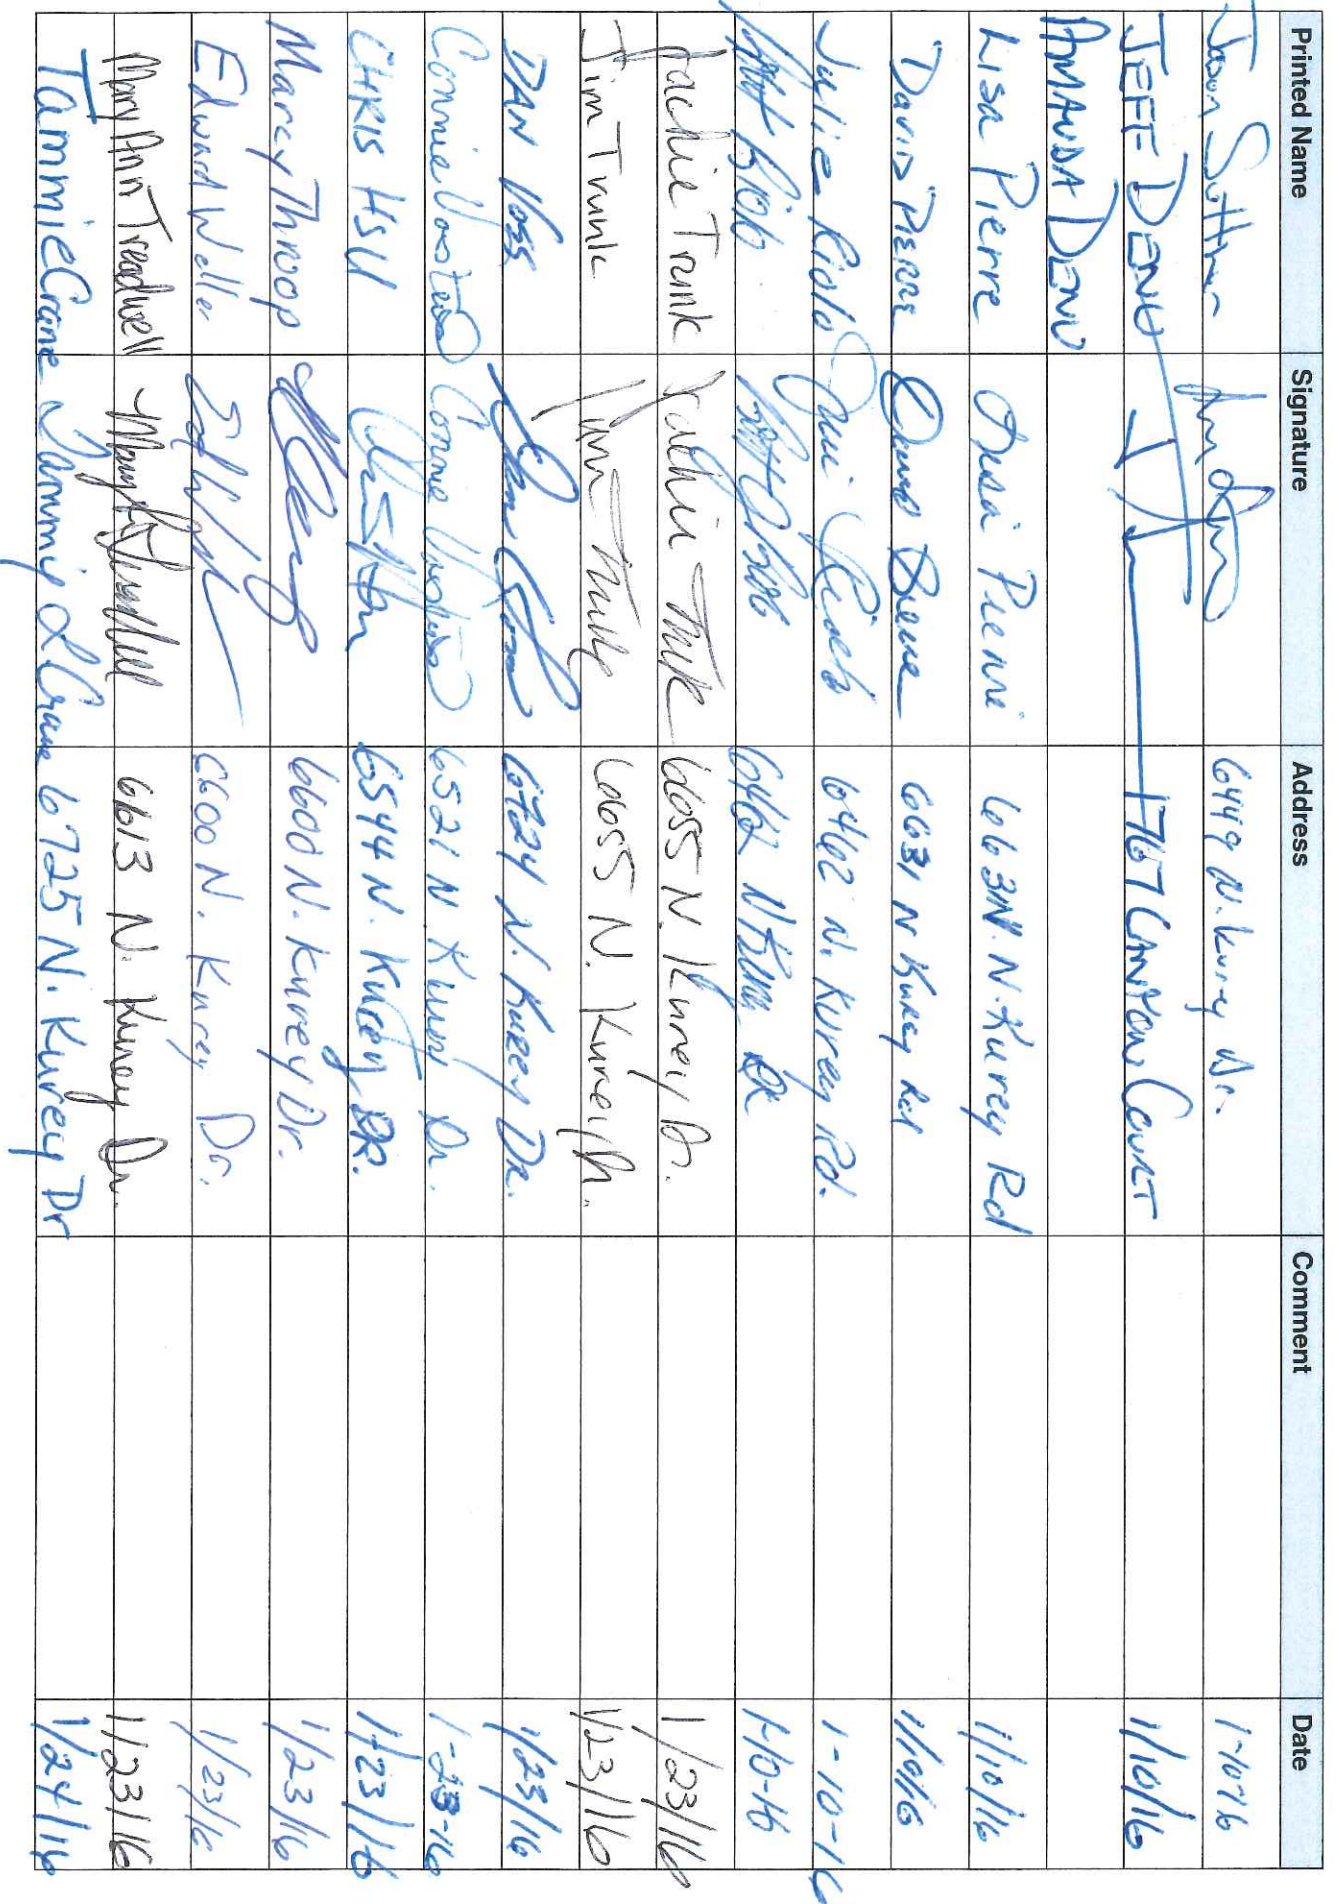 Printed Name Signature Address Comment Date
Jason 6449 N. Kurey Dr. 1-10-16
JEFF DENU 1767 CANYON COURT 1/10/16
AMANDA DENU
Lisa Pierre Lisa Pierre 6631 N. Kurey Rd 1/10/16
DAVID PIERRE David Pierre 6631 N Kurey Rd 1/10/16
Julie Riolo Julie Riolo 6462 N. Kurey Rd. 1-10-16
6462 N Kurey DR 1-10-16
Jackie Trunk Jackie Trunk 6655 N. Kurey Dr. 1/23/16
Jim Trunk Jim Trunk 6655 N. Kurey Dr. 1/23/16
DAN Voss 6724 N. Kurey DR. 1/23/16
Connie Connie 6521 N Kurey Dr. 1-23-16
CHRIS HSU 6544 N. Kurey DR. 1/23/16
Marcy Throop 6600 N. Kurey Dr. 1/23/16
Edward Weller 6600 N. Kurey Dr. 1/23/16
Mary Ann Treadwell 6613 N. Kurey Dr. 1/23/16
Tammie Crane Tammie L Crane 6725 N. Kurey Dr 1/24/16